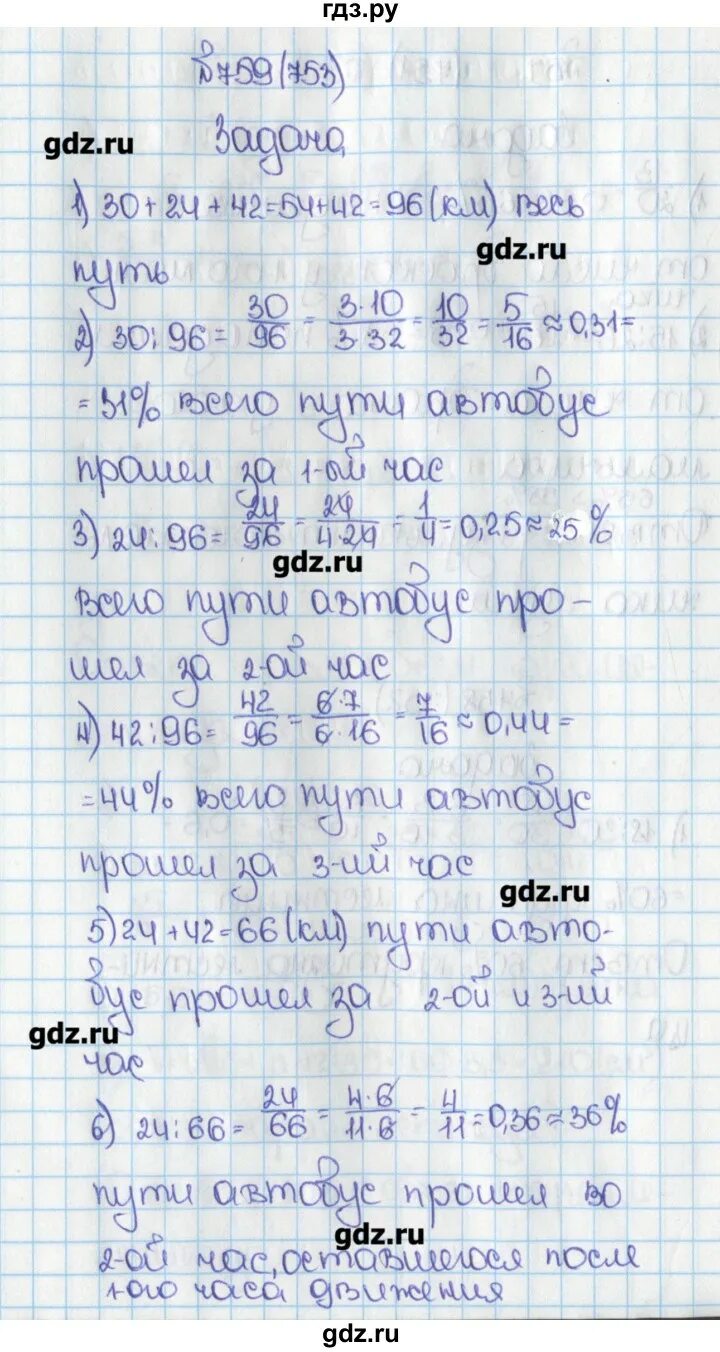 гдз.ру
№759(753)
gdz.ru
Задача
1) 30+24+42=54+42=96(км) весь
gdz.ru
путь
2) 30:96= 30/96 = 3·10/3·32 = 10/32 = 5/16 ≈ 0,31=
=31% всего пути автобус
прошел за 1-ой час
3) 24:96= 24/96 = 24/4·24 = 1/4 = 0,25≈25%
gdz.ru
всего пути автобус про-
шел за 2-ой час
4) 42:96= 42/96 = 6·7/6·16 = 7/16 ≈ 0,44=
=44% всего пути автобус
прошел за 3-ий час
gdz.ru
5) 24+42=66(км) пути авто-
бус прошел за 2-ой и 3-ий
gdz.ru
час
6) 24:66= 24/66 = 4·6/11·6 = 4/11 =0,36≈36%
пути автобус прошел во
gdz.ru
2-ой час, оставшегося после
1-ого часа движения
gdz.ru